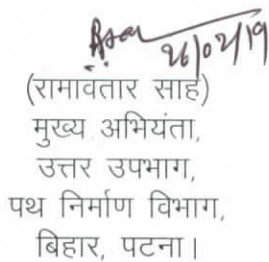 26/02/19
(रामावतार साह)
मुख्य अभियंता,
उत्तर उपभाग,
पथ निर्माण विभाग,
बिहार, पटना।